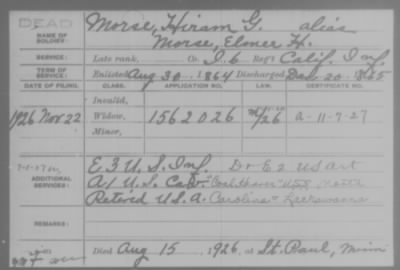 DEAD
NAME OF SOLDIER: Morse, Hiram G. alias
Morse, Elmer H.
SERVICE: Late rank, Co. I, 6 Reg't Calif. Inf.
TERM OF SERVICE: Enlisted Aug 30, 1864 Discharged Dec. 20, 1865
DATE OF FILING. CLASS. APPLICATION NO. CERTIFICATE NO.
Invalid,
1926 Nov 22 Widow, 1562026 A-11-7-27
Minor,
ADDITIONAL SERVICES: E 3 U.S. Inf. Dr E 2 US art
A 1 U.S. Cav.
Retired U.S.A. Carolina Lackawanna
REMARKS:
Died Aug 15, 1926, at St. Paul, Minn